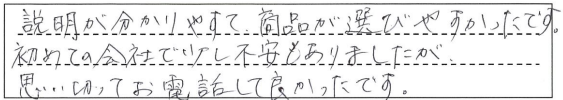 説明が分かりやすて、商品が選びやすかったです。
初めての会社で少し不安もありましたが、
思い切ってお電話して良かったです。